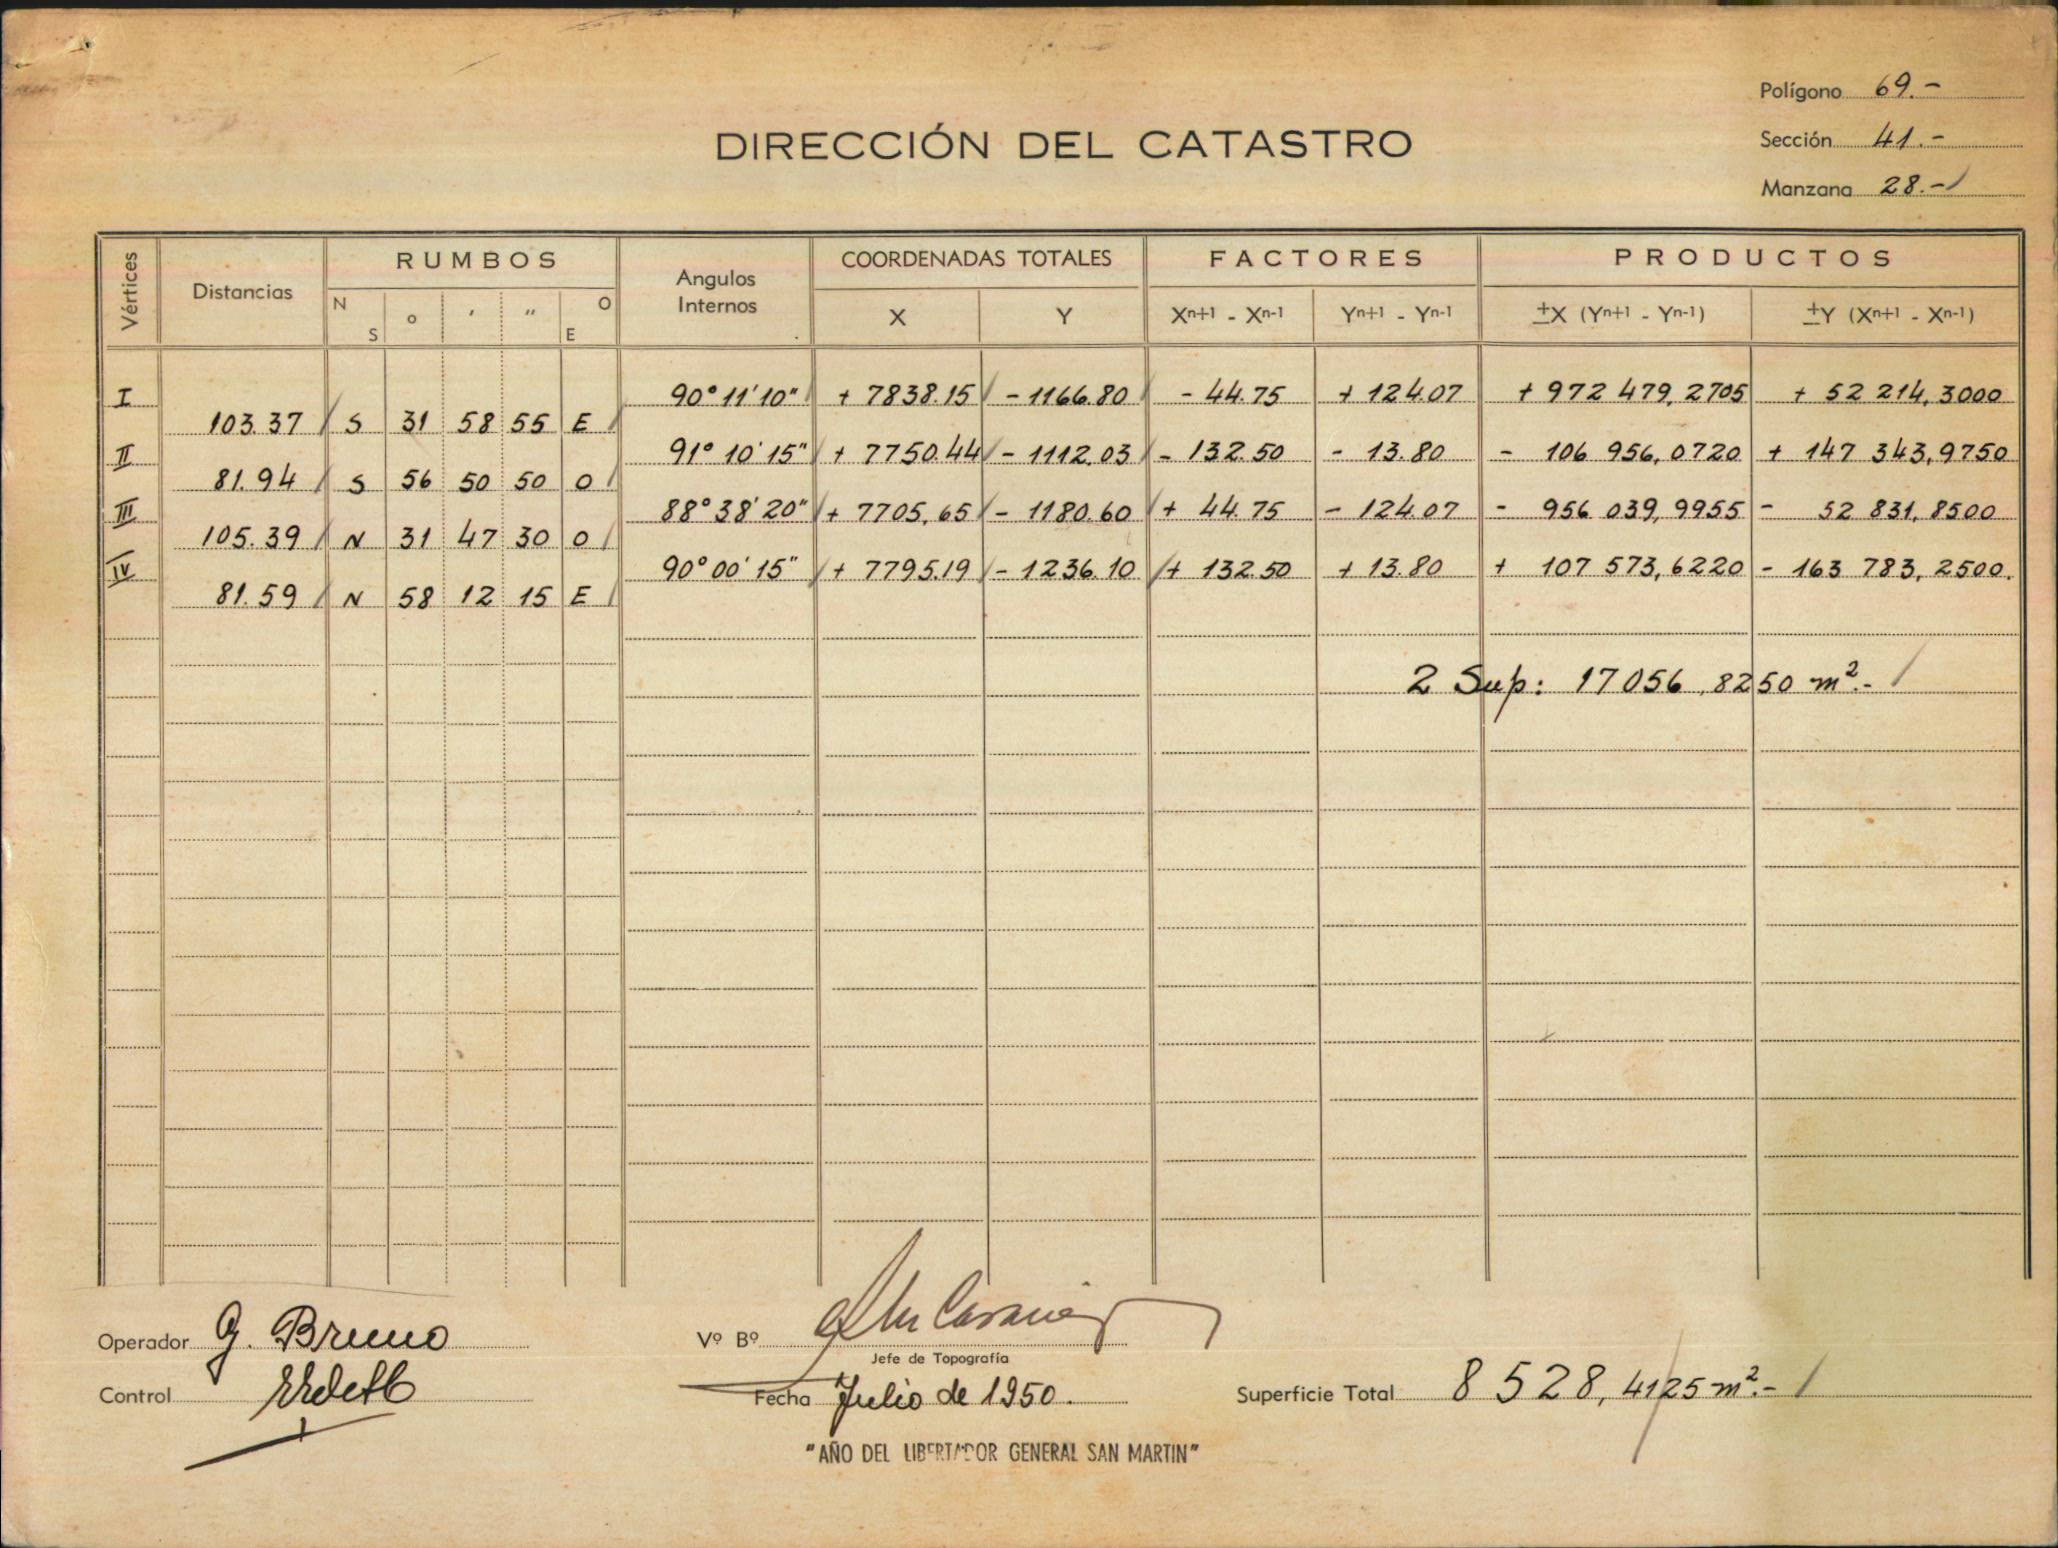 Polígono 69.-
DIRECCIÓN DEL CATASTRO
Sección 41.-
Manzana 28.-
Vértices Distancias RUMBOS Angulos Internos COORDENADAS TOTALES FACTORES PRODUCTOS
N S o ′ ″ O E X Y Xⁿ⁺¹ - Xⁿ⁻¹ Yⁿ⁺¹ - Yⁿ⁻¹ ±X (Yⁿ⁺¹ - Yⁿ⁻¹) ±Y (Xⁿ⁺¹ - Xⁿ⁻¹)
I 90° 11' 10" + 7838.15 - 1166.80 - 44.75 + 124.07 + 972 479,2705 + 52 214,3000
103.37 S 31 58 55 E
II 91° 10' 15" + 7750.44 - 1112.03 - 132.50 - 13.80 - 106 956,0720 + 147 343,9750
81.94 S 56 50 50 O
III 88° 38' 20" + 7705,65 - 1180.60 + 44.75 - 124.07 - 956 039,9955 - 52 831,8500
105.39 N 31 47 30 O
IV 90° 00' 15" + 7795.19 - 1236.10 + 132.50 + 13.80 + 107 573,6220 - 163 783,2500.
81.59 N 58 12 15 E
2 Sup: 17056,8250 m².-
Operador G. Bruno
Vº Bº
Jefe de Topografía
Control
Fecha Julio de 1950.
Superficie Total 8528,4125 m².-
"AÑO DEL LIBERTADOR GENERAL SAN MARTIN"